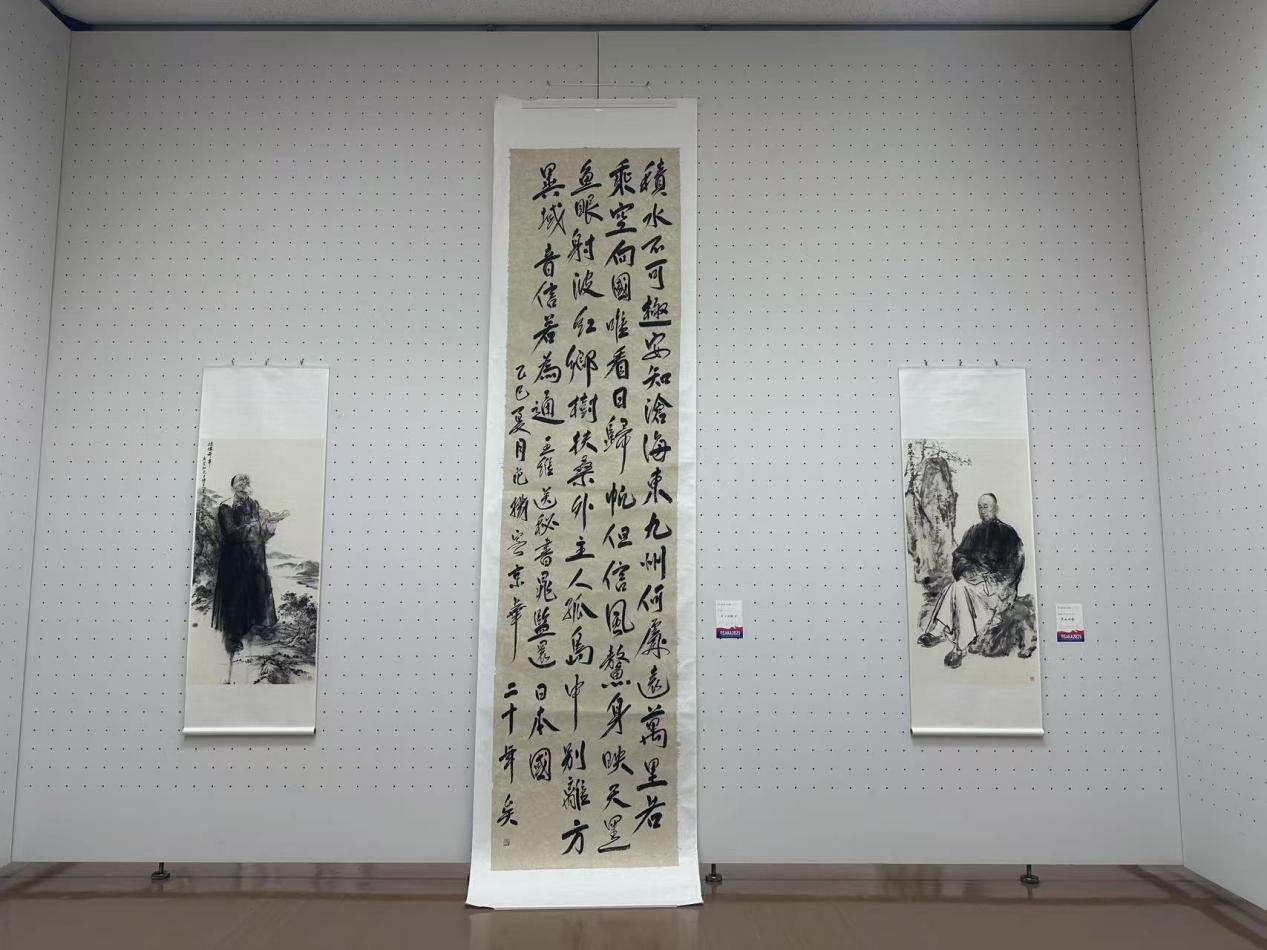 積水不可極安知滄海東九州何處遠萬里若
乘空向國唯看日歸帆但信風鰲身映天黑
魚眼射波紅鄉樹扶桑外主人孤島中別離方
異域音信若為通 王維送秘書晁監還日本國
乙巳夏月 客京華二十年矣